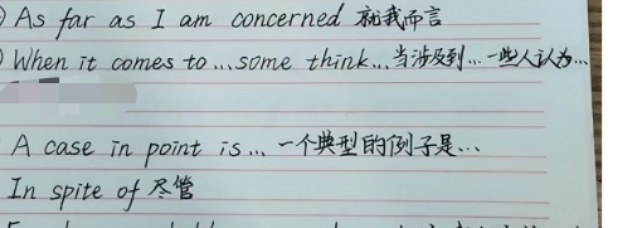 As far as I am concerned 就我而言
When it comes to ... some think... 当涉及到... 一些人认为...
A case in point is... 一个典型的例子是...
In spite of 尽管